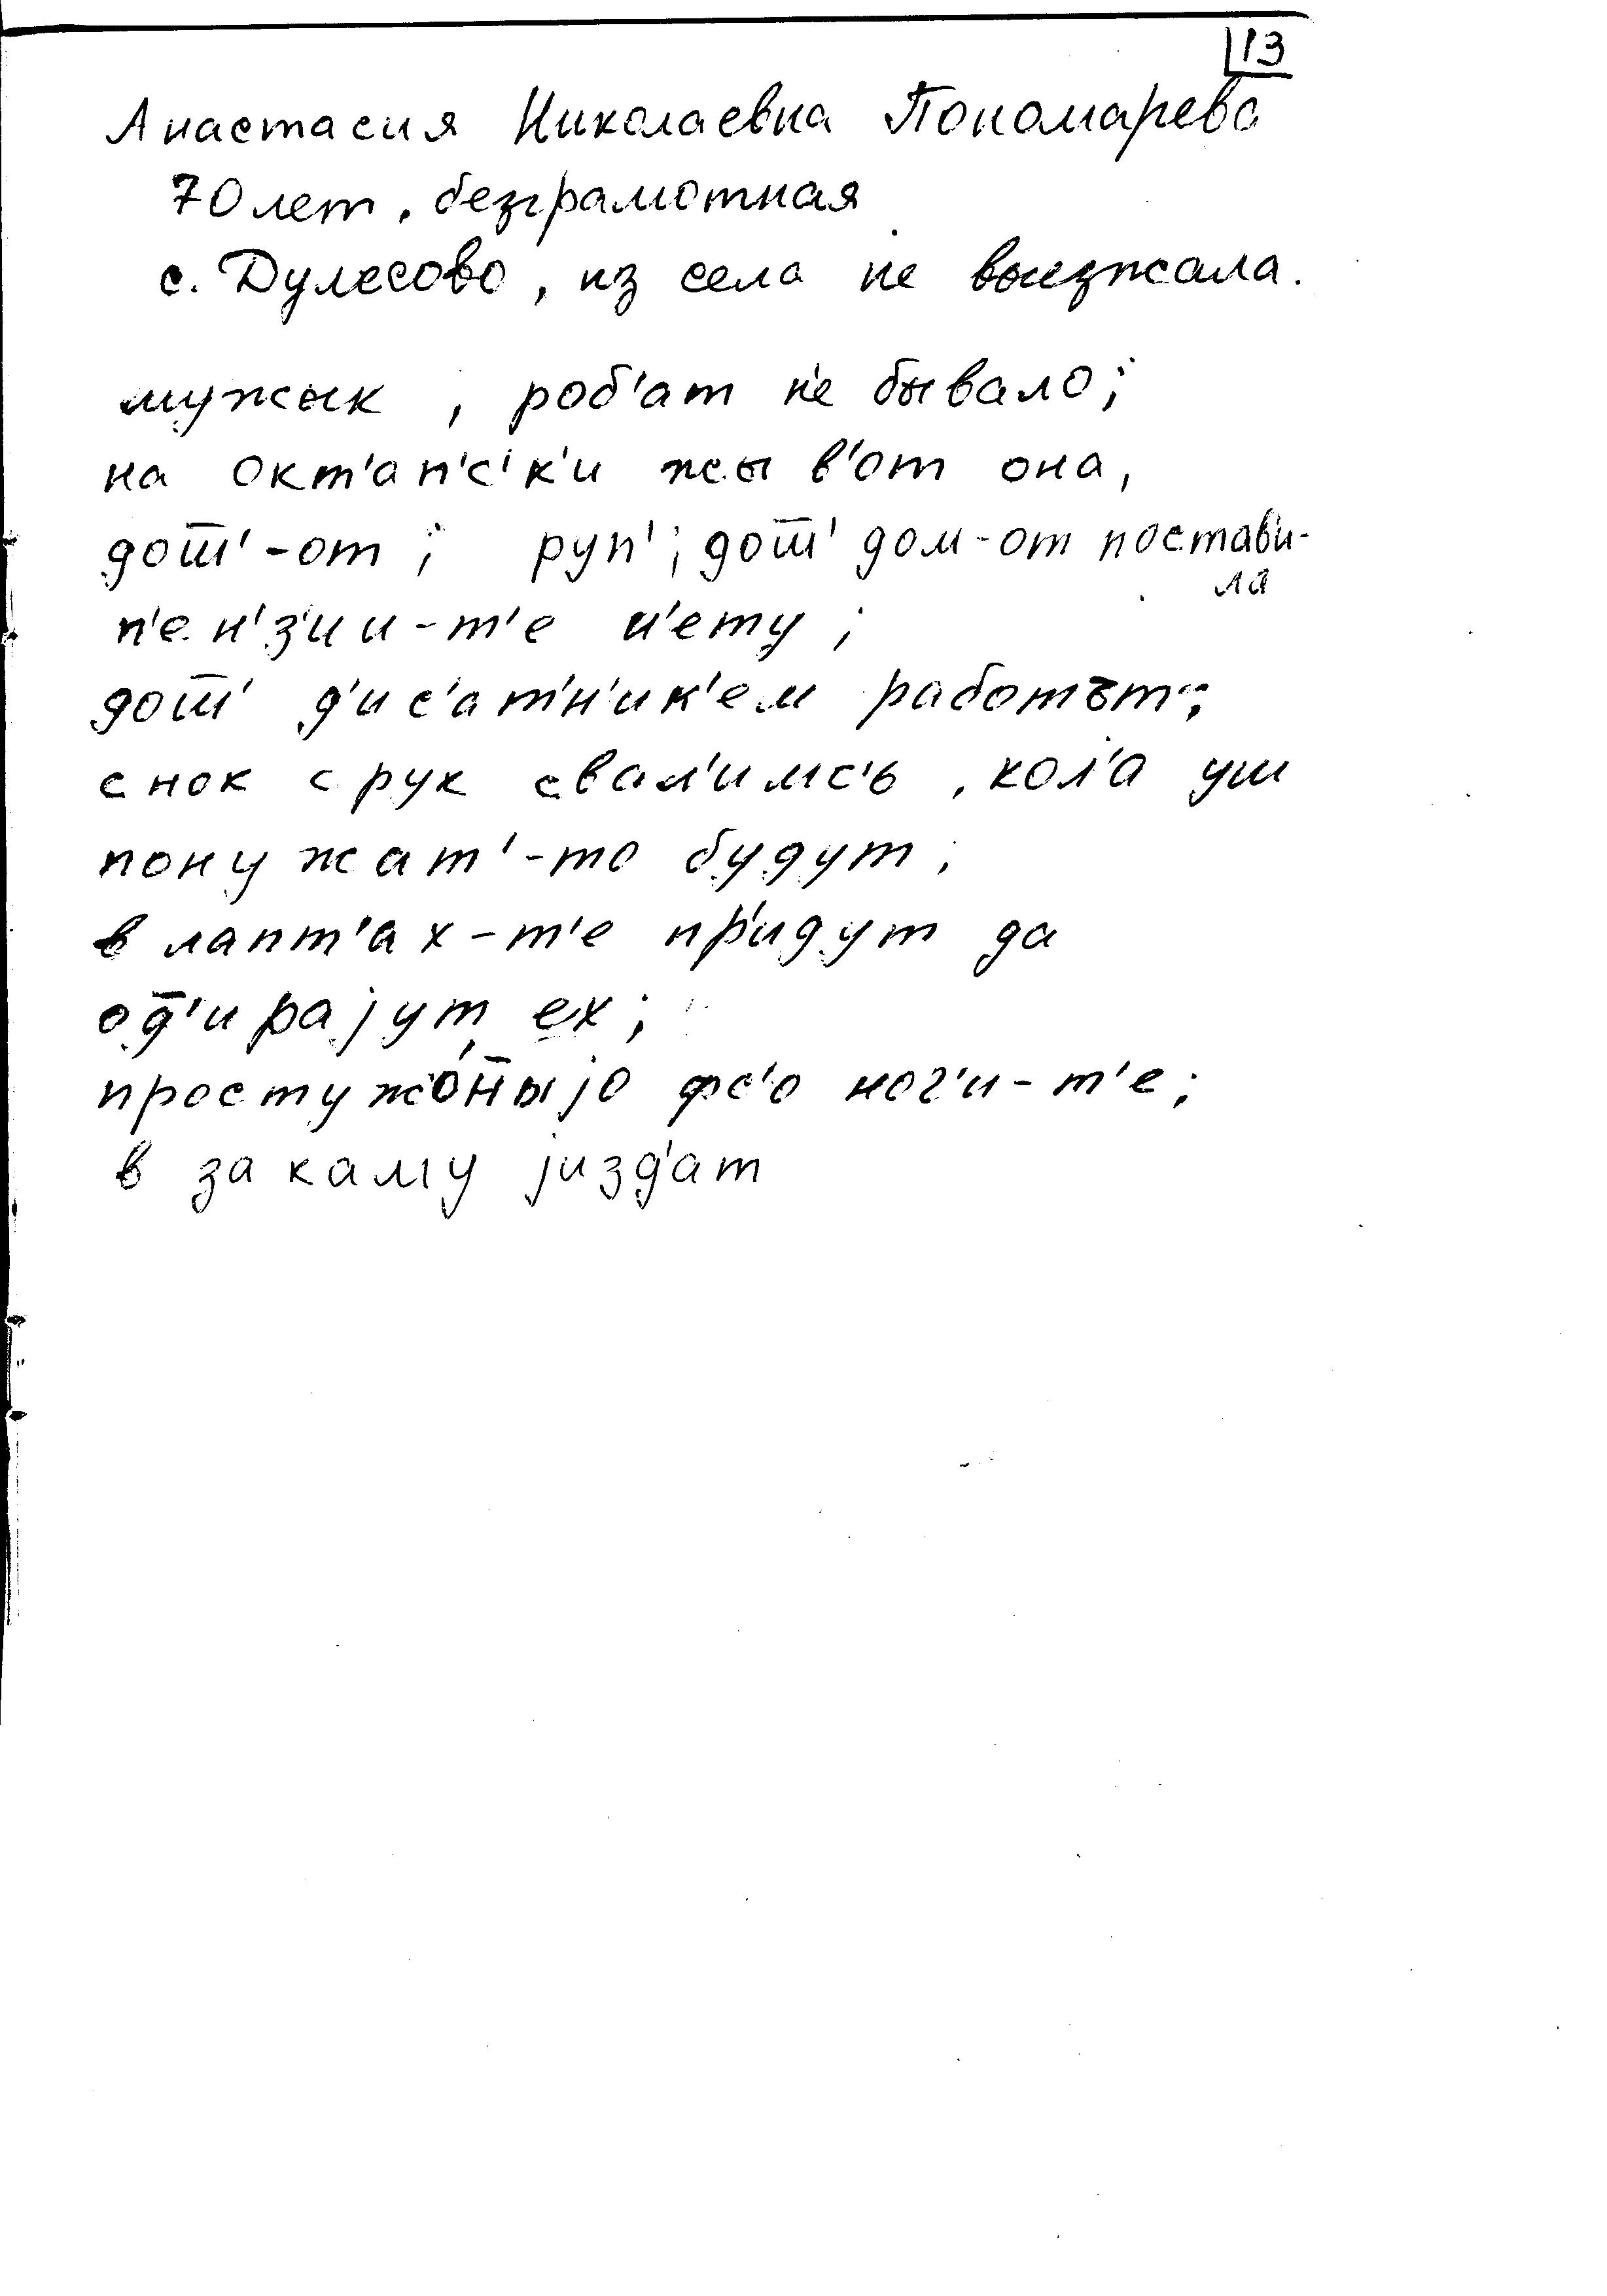 13
Анастасия Николаевна Пономарева
70 лет, безграмотная
с. Дулесово, из села не выезжала.
мужык, роб'ат н'е бывало;
на окт'ап'с'к'и жыв'от она,
дот̅ш'-от; руп'; дот̅ш' дом-от постави-
ла
п'ен'з'ии-т'е н'ету;
дот̅ш' д'ис'ат'н'ик'ем работът;
снок с рук свал'имс'ь, кол'а уш
понужат'-то будут;
в лапт'ах-т'е пр'идут да
од̅'ирајут ех;
простужо́н̅ыјо фс'о ног'и-т'е;
в закаму јизд'ат